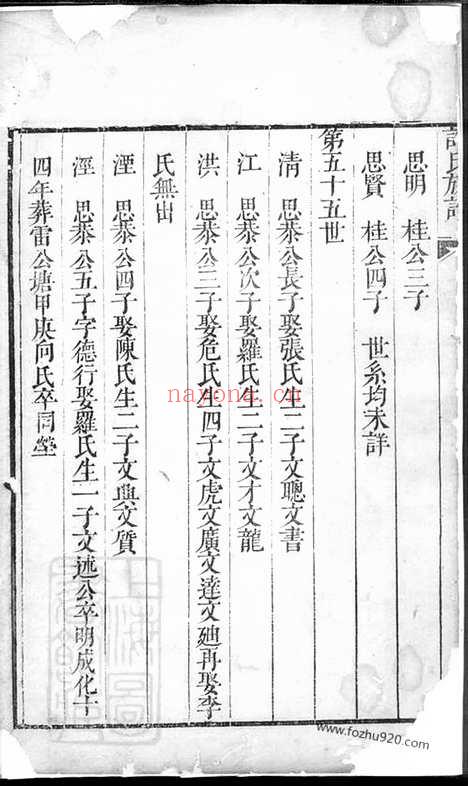 氏族譜
思明　桂公三子
思賢　桂公四子　世系均未詳
第五十五世
清　思恭公長子娶張氏生二子文聰文書
江　思恭公次子娶羅氏生二子文才文龍
洪　思恭公三子娶危氏生四子文虎文廣文達文廸再娶李
氏無出
湮　思恭公四子娶陳氏生二子文與文質
涇　思恭公五子字德行娶羅氏生一子文述公卒明成化十
四年葬雷公塘甲庚向氏卒同塋
nayona.cn
www.fozhu920.com